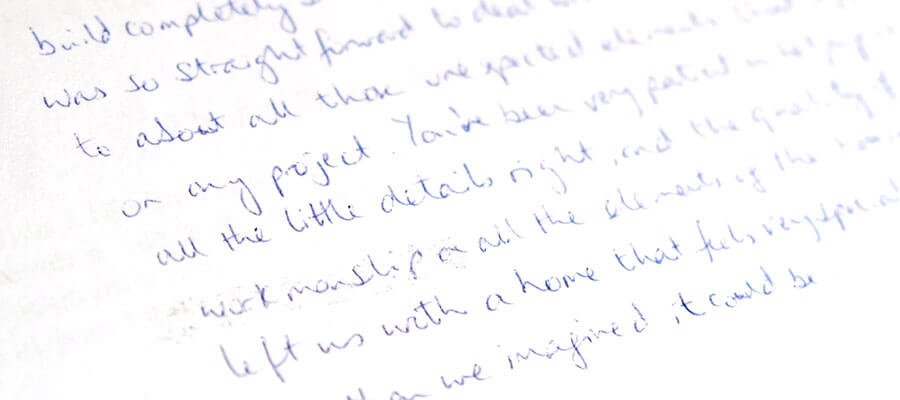 build completely
was so straightforward to deal
to about all those unexpected elements that
on any project. You've been very patient in helping
all the little details right, and the quality of
workmanship on all the elements of the
left us with a home that feels very special
than we imagined it could be